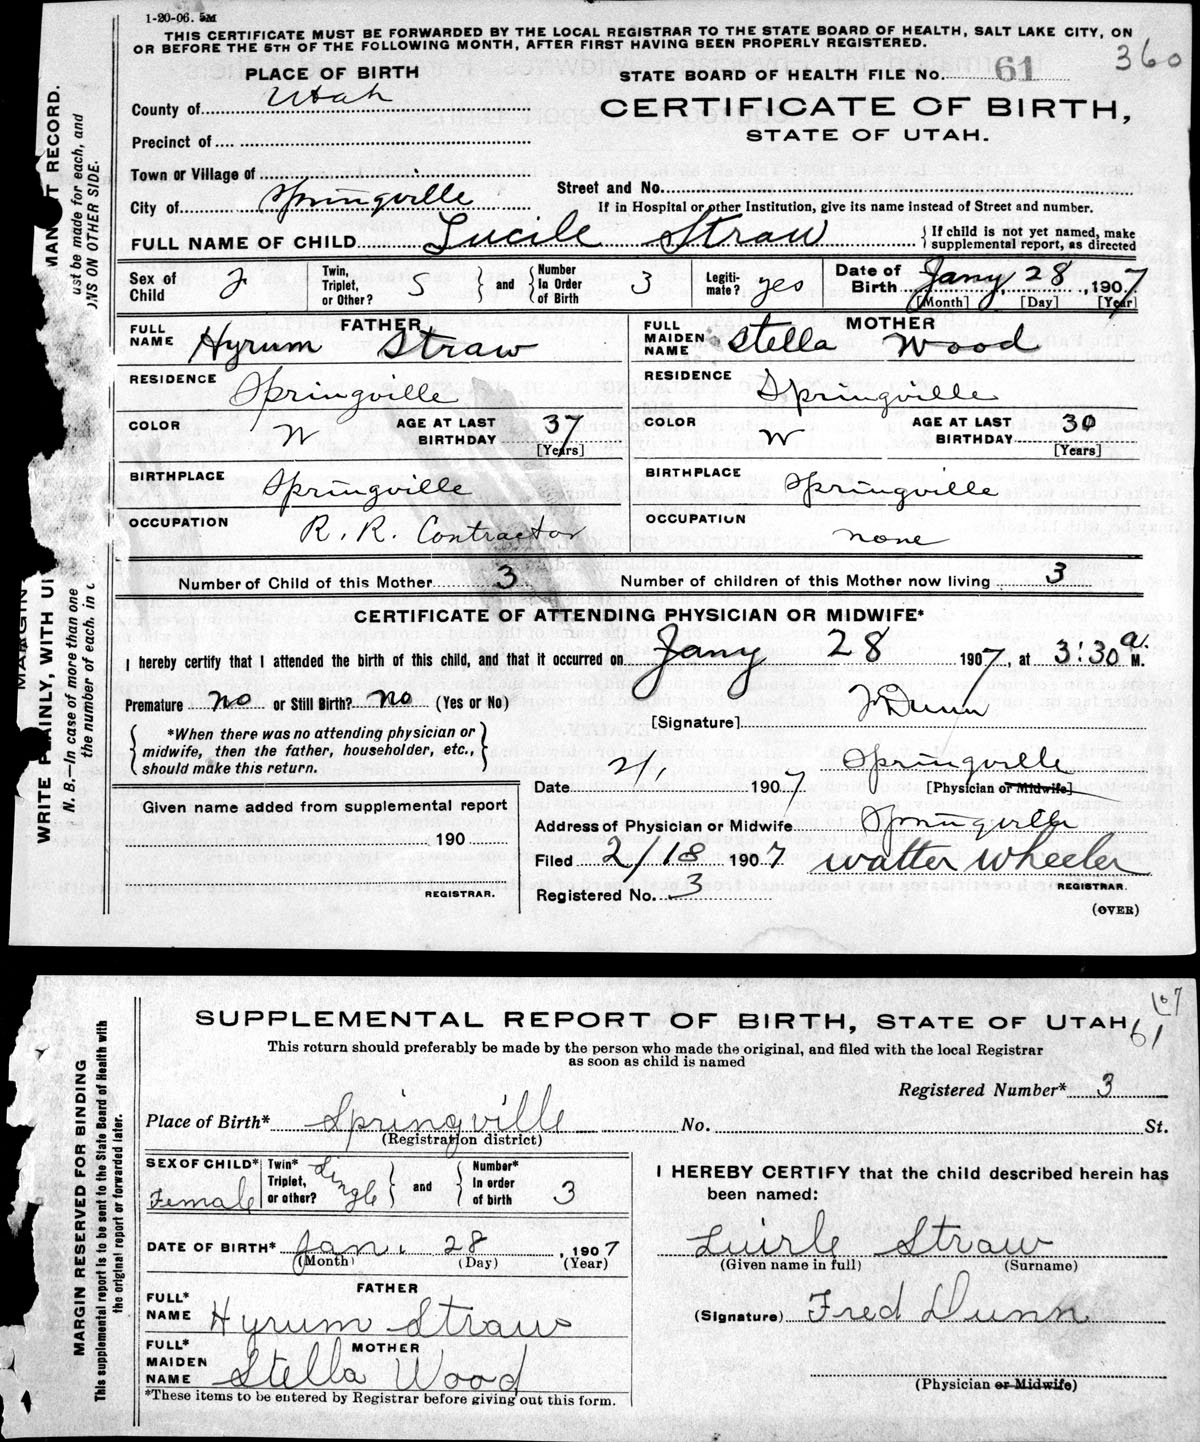 1-20-06. 5M
THIS CERTIFICATE MUST BE FORWARDED BY THE LOCAL REGISTRAR TO THE STATE BOARD OF HEALTH, SALT LAKE CITY, ON
OR BEFORE THE 5TH OF THE FOLLOWING MONTH, AFTER FIRST HAVING BEEN PROPERLY REGISTERED.
360
PLACE OF BIRTH
STATE BOARD OF HEALTH FILE No. 61
County of Utah
CERTIFICATE OF BIRTH,
STATE OF UTAH.
Precinct of
Town or Village of
Street and No.
City of Springville
If in Hospital or other Institution, give its name instead of Street and number.
FULL NAME OF CHILD Lucile Straw { If child is not yet named, make supplemental report, as directed
Sex of Child F Twin, Triplet, or Other? S } and { Number In Order of Birth 3 Legiti-mate? yes Date of Birth Jany 28, 1907
[Month] [Day] [Year]
FATHER
FULL NAME Hyrum Straw
RESIDENCE Springville
COLOR W AGE AT LAST BIRTHDAY 37
[Years]
BIRTHPLACE Springville
OCCUPATION R. R. Contractor
MOTHER
FULL MAIDEN NAME Stella Wood
RESIDENCE Springville
COLOR W AGE AT LAST BIRTHDAY 30
[Years]
BIRTHPLACE Springville
OCCUPATION none
Number of Child of this Mother 3 Number of children of this Mother now living 3
CERTIFICATE OF ATTENDING PHYSICIAN OR MIDWIFE*
I hereby certify that I attended the birth of this child, and that it occurred on Jany 28 1907, at 3:30 a. M.
Premature no or Still Birth? no (Yes or No)
[Signature] Dunn
{ *When there was no attending physician or midwife, then the father, householder, etc., should make this return. }
Springville
Date 2/1, 1907 [Physician or Midwife]
Given name added from supplemental report
190
REGISTRAR.
Address of Physician or Midwife Springville
Filed 2/18 1907 Walter Wheeler
REGISTRAR.
Registered No. 3
(OVER)
SUPPLEMENTAL REPORT OF BIRTH, STATE OF UTAH
61
This return should preferably be made by the person who made the original, and filed with the local Registrar
as soon as child is named
Registered Number* 3
Place of Birth* Springville No. St.
(Registration district)
SEX OF CHILD* Female Twin* Triplet, or other? Single } and { Number* In order of birth 3
DATE OF BIRTH* Jan. 28, 1907
(Month) (Day) (Year)
FATHER
FULL* NAME Hyrum Straw
MOTHER
FULL* MAIDEN NAME Stella Wood
*These items to be entered by Registrar before giving out this form.
I HEREBY CERTIFY that the child described herein has
been named:
Luirle Straw
(Given name in full) (Surname)
(Signature) Fred Dunn
(Physician or Midwife)
MARGIN RESERVED FOR BINDING
This supplemental report is to be sent to the State Board of Health with
the original report or forwarded later.